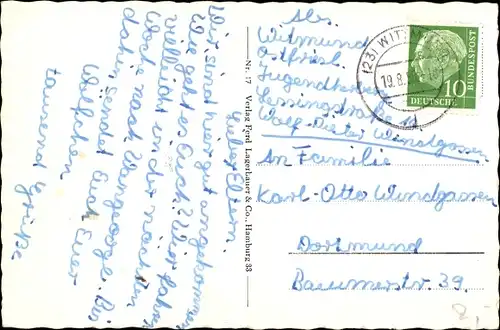 Liebe Eltern.
Wir sind hier gut angekommen.
Wie geht es Euch? Wir fahren
vielleicht in der nächsten
Woche nach Wangeooge. Bis
dahin, sendet Euch Euer
Wölfchen
tausend Grüße
Nr. 17 Verlag Ferd. Lagerbauer & Co., Hamburg 33
Abs.
Witmund
Ostfriesl.
Lessingstraße 11
Wolf-Dieter Windgassen
An Familie
Karl-Otto Windgassen
Dortmund
Baumerstr. 39.
(23) WITTM
19.8.
10
DEUTSCHE
BUNDESPOST
2,-